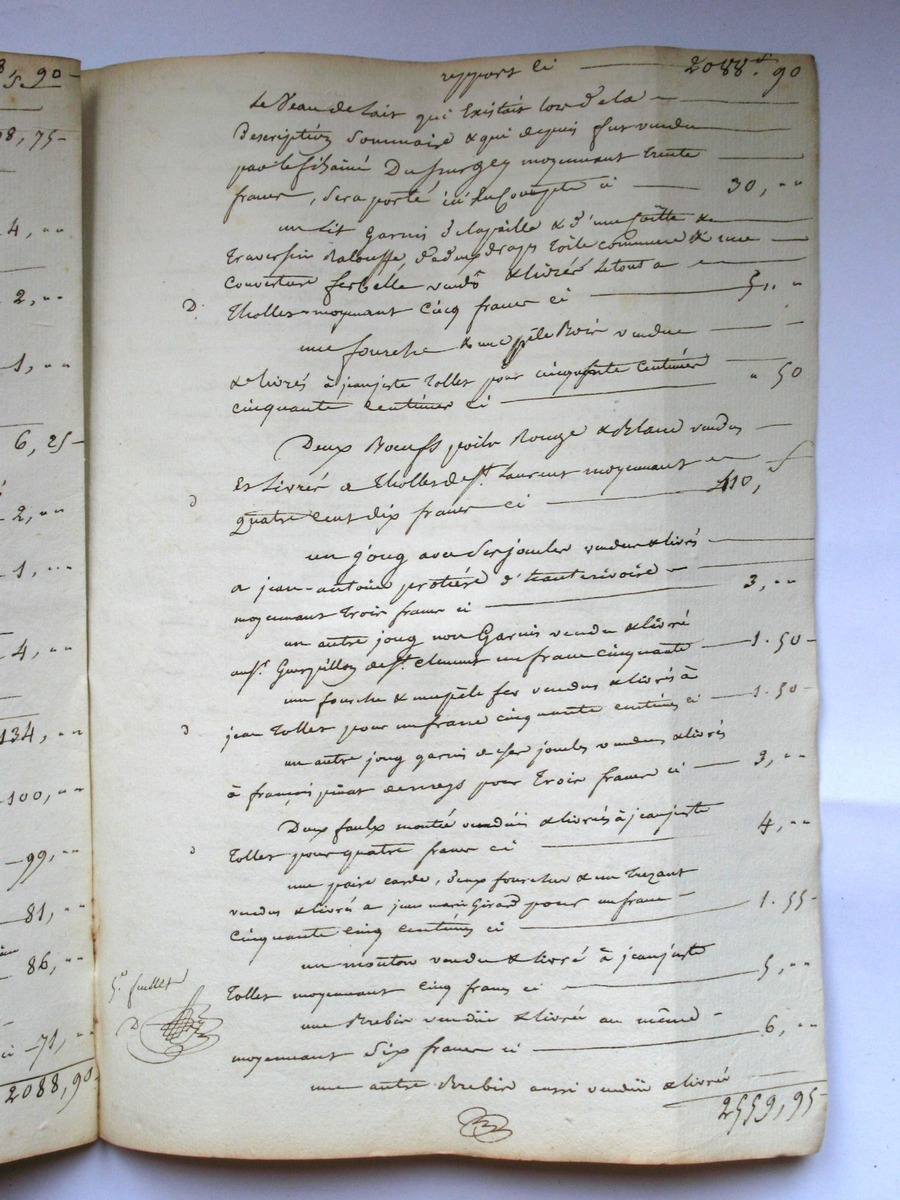 8,5,90
98,75
4,""
2,""
1,""
6,25
2,""
1,""
4,""
134,""
100,""
99,""
81,""
86,""
ci 71,""
2088,90
report ci 2088.f 90
Le Veau de lait qui Existait lors de la
Description Sommaire & qui depuis fut vendu
par le moyennant trente
francs, Sera porté ici En Compte ci 30,""
un Lit Garni de la paille & d'une &
traversin d'adeux draps toile commune & une
couverture vendu & livrés le tout a
D. thollet moyennant Cinq francs ci 5,."
une fourche & une pèle Bois vendue
& livrés à jean juste tollet pour cinquante centimes
cinquante centimes ci " 50
Deux Bœufs poils Rouge & Blanc vendus
Et Livrés a thollet de St. Laurent moyennant
D quatre cent dix francs ci 410,f
un joug avec Ses joucles vendu & livrés
a jean-antoine protière d'hauterivoire
moyennant trois francs ci 3,""
un autre joug non Garnis vendu & livré
aust. Guerpillon de St. clement un franc cinquante 1.50
une fourche & une pèle fer vendus & livrés à
D jean tollet pour un franc cinquante centimes ci 1.50
un autre joug garni de Ses joucles vendus & livrés
à françois pour trois francs ci 3,""
Deux faulx montée venduës & livrés à jean juste
D tollet pour quatre francs ci 4,""
une paire carde, deux fourches & un trezant
vendus & livrés a jean marie Girard pour un franc
Cinquante cinq centimes ci 1.55
un mouton vendu & livré à jean juste
tollet moyennant Cinq francs ci 5,""
5e. feuillet
D
une Brebis venduë & livrée au même
moyennant Six francs ci 6,""
une autre Brebis aussi venduë & livrée
2559,95